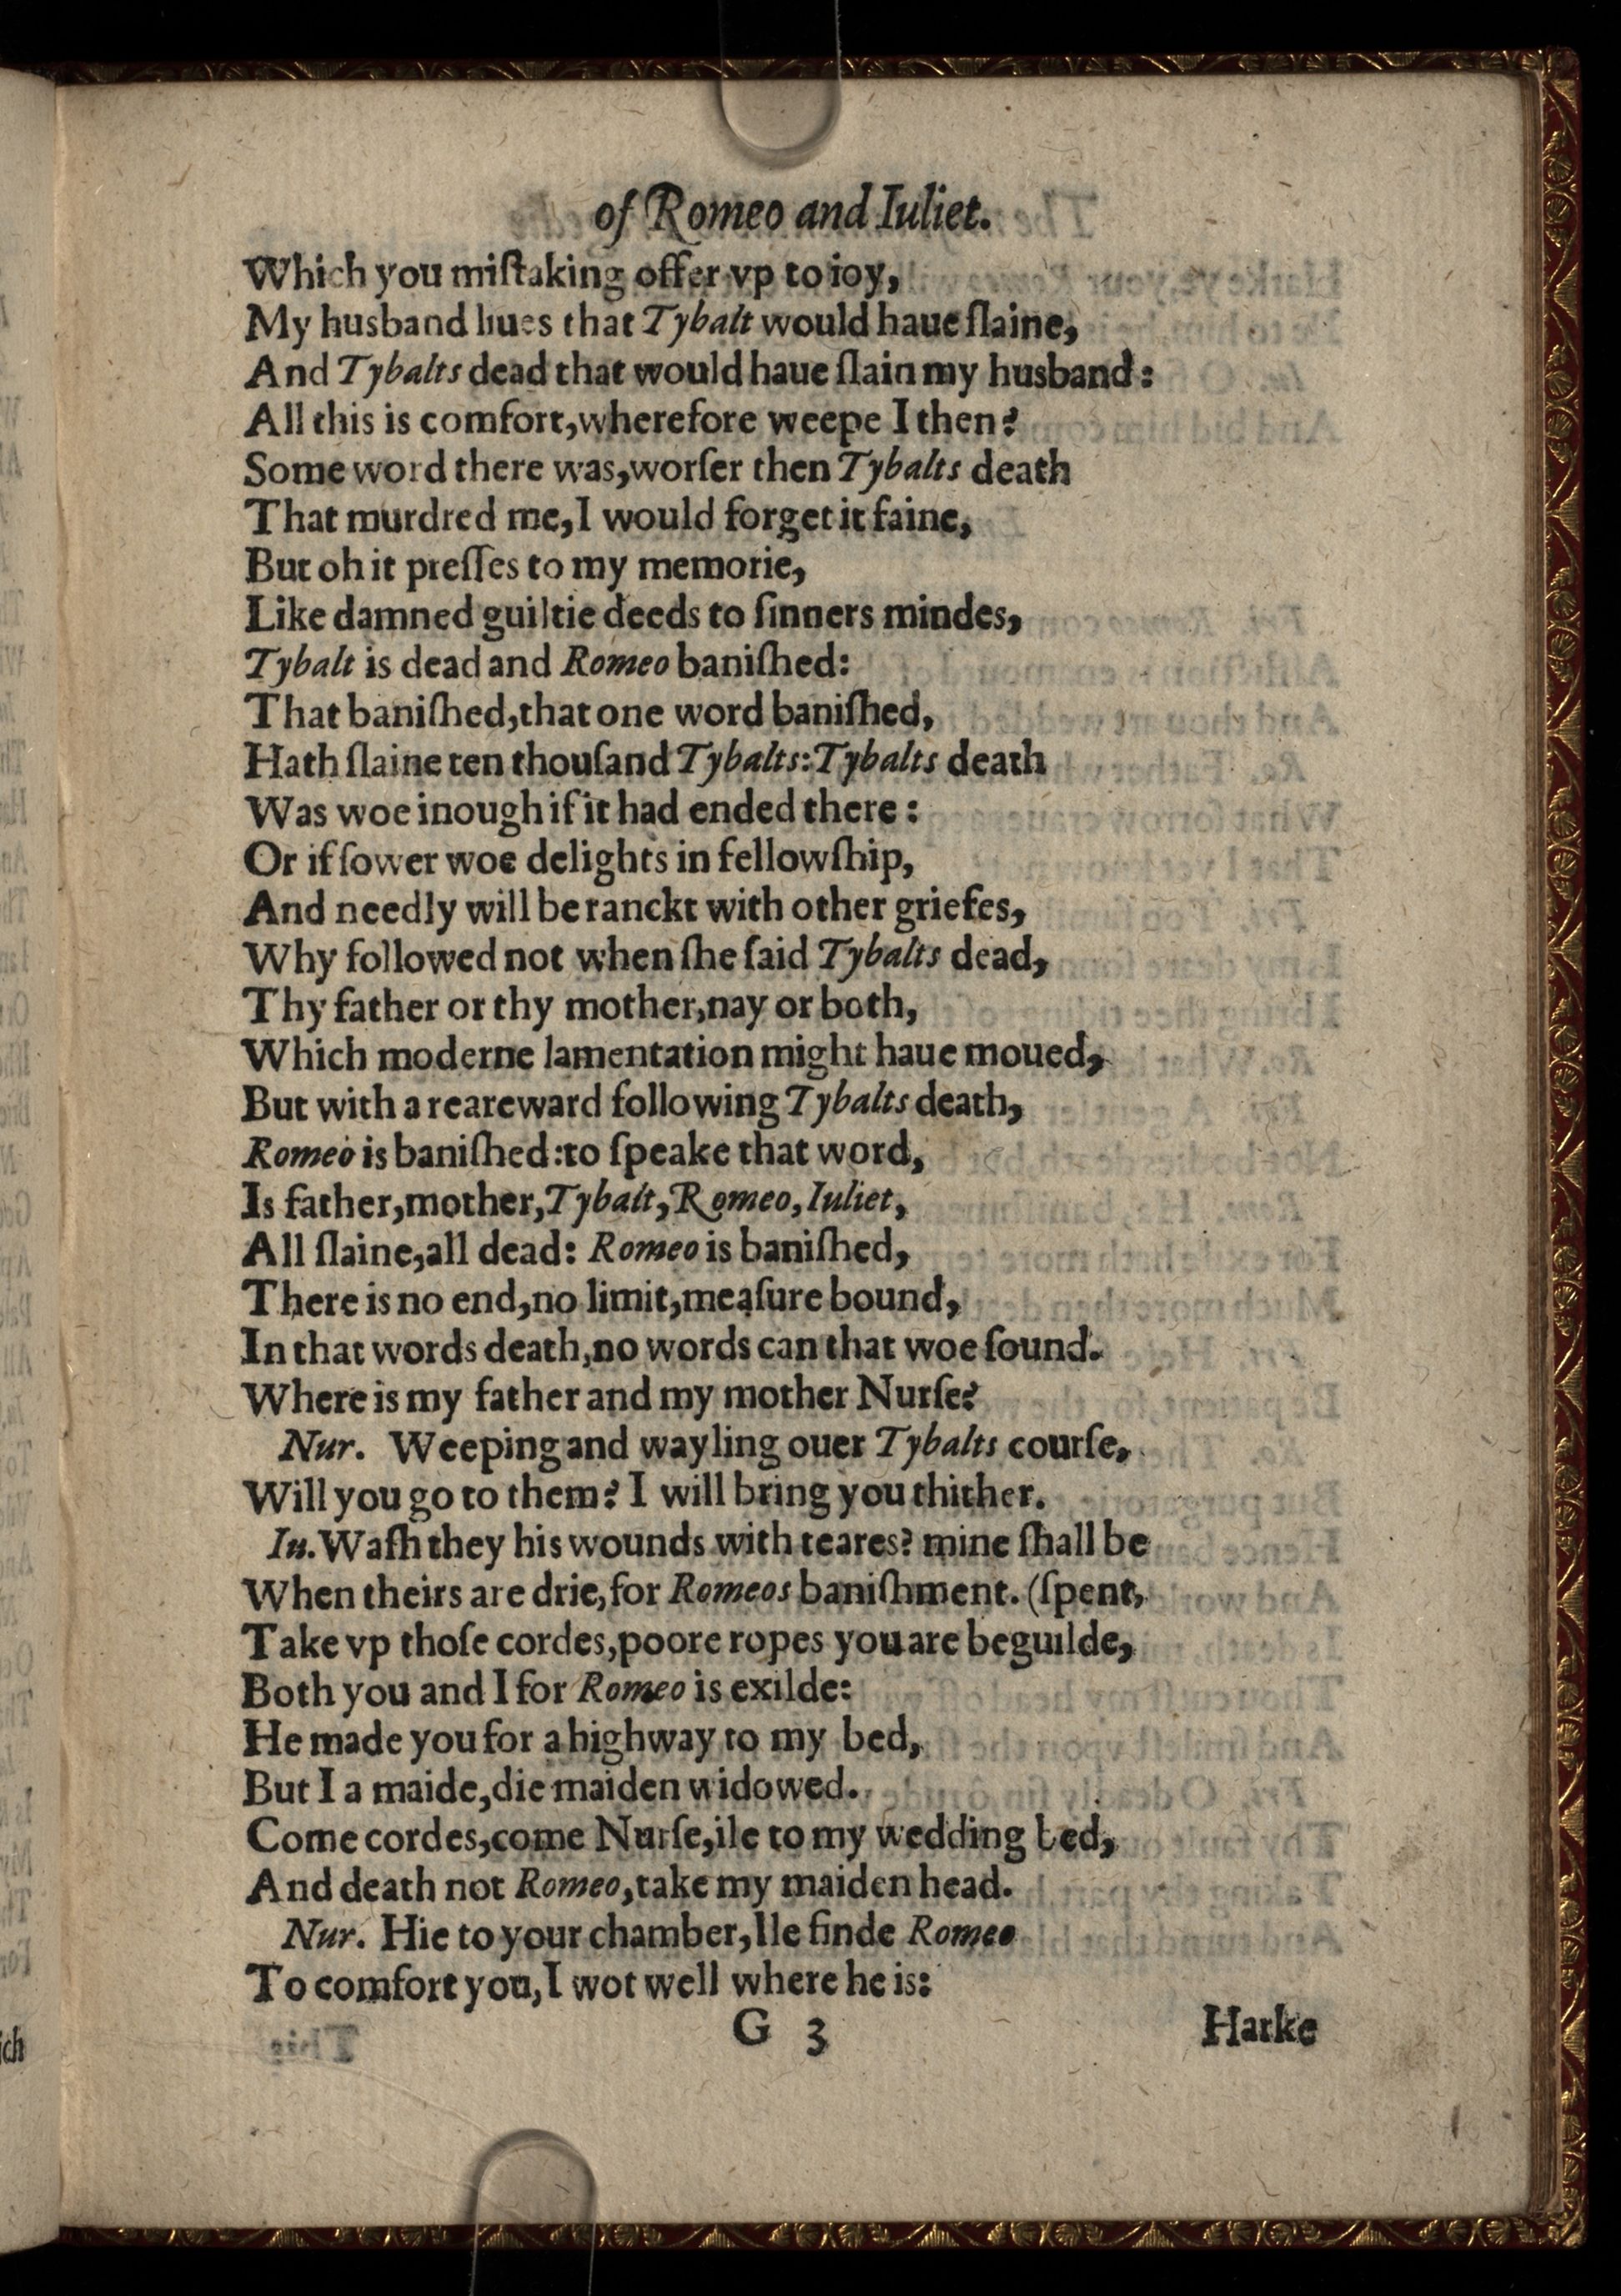 of Romeo and Iuliet.
Which you miſtaking offer vp to ioy,
My husband liues that Tybalt would haue ſlaine,
And Tybalts dead that would haue ſlain my husband:
All this is comfort,wherefore weepe I then?
Some word there was,worſer then Tybalts death
That murdred me,I would forget it faine,
But oh it preſſes to my memorie,
Like damned guiltie deeds to ſinners mindes,
Tybalt is dead and Romeo baniſhed:
That baniſhed,that one word baniſhed,
Hath ſlaine ten thouſand Tybalts:Tybalts death
Was woe inough if it had ended there:
Or if ſower woe delights in fellowſhip,
And needly will be ranckt with other griefes,
Why followed not when ſhe ſaid Tybalts dead,
Thy father or thy mother,nay or both,
Which moderne lamentation might haue moued,
But with a reareward following Tybalts death,
Romeo is baniſhed:to ſpeake that word,
Is father,mother,Tybalt,Romeo,Iuliet,
All ſlaine,all dead: Romeo is baniſhed,
There is no end,no limit,meaſure bound,
In that words death,no words can that woe ſound.
Where is my father and my mother Nurſe?
Nur. Weeping and wayling ouer Tybalts courſe,
Will you go to them? I will bring you thither.
Iu.Waſh they his wounds with teares? mine ſhall be
When theirs are drie,for Romeos baniſhment. (ſpent,
Take vp thoſe cordes,poore ropes you are beguilde,
Both you and I for Romeo is exilde:
He made you for a highway to my bed,
But I a maide,die maiden widowed.
Come cordes,come Nurſe,ile to my wedding bed,
And death not Romeo,take my maiden head.
Nur. Hie to your chamber,Ile finde Romeo
To comfort you,I wot well where he is:
G 3 Harke